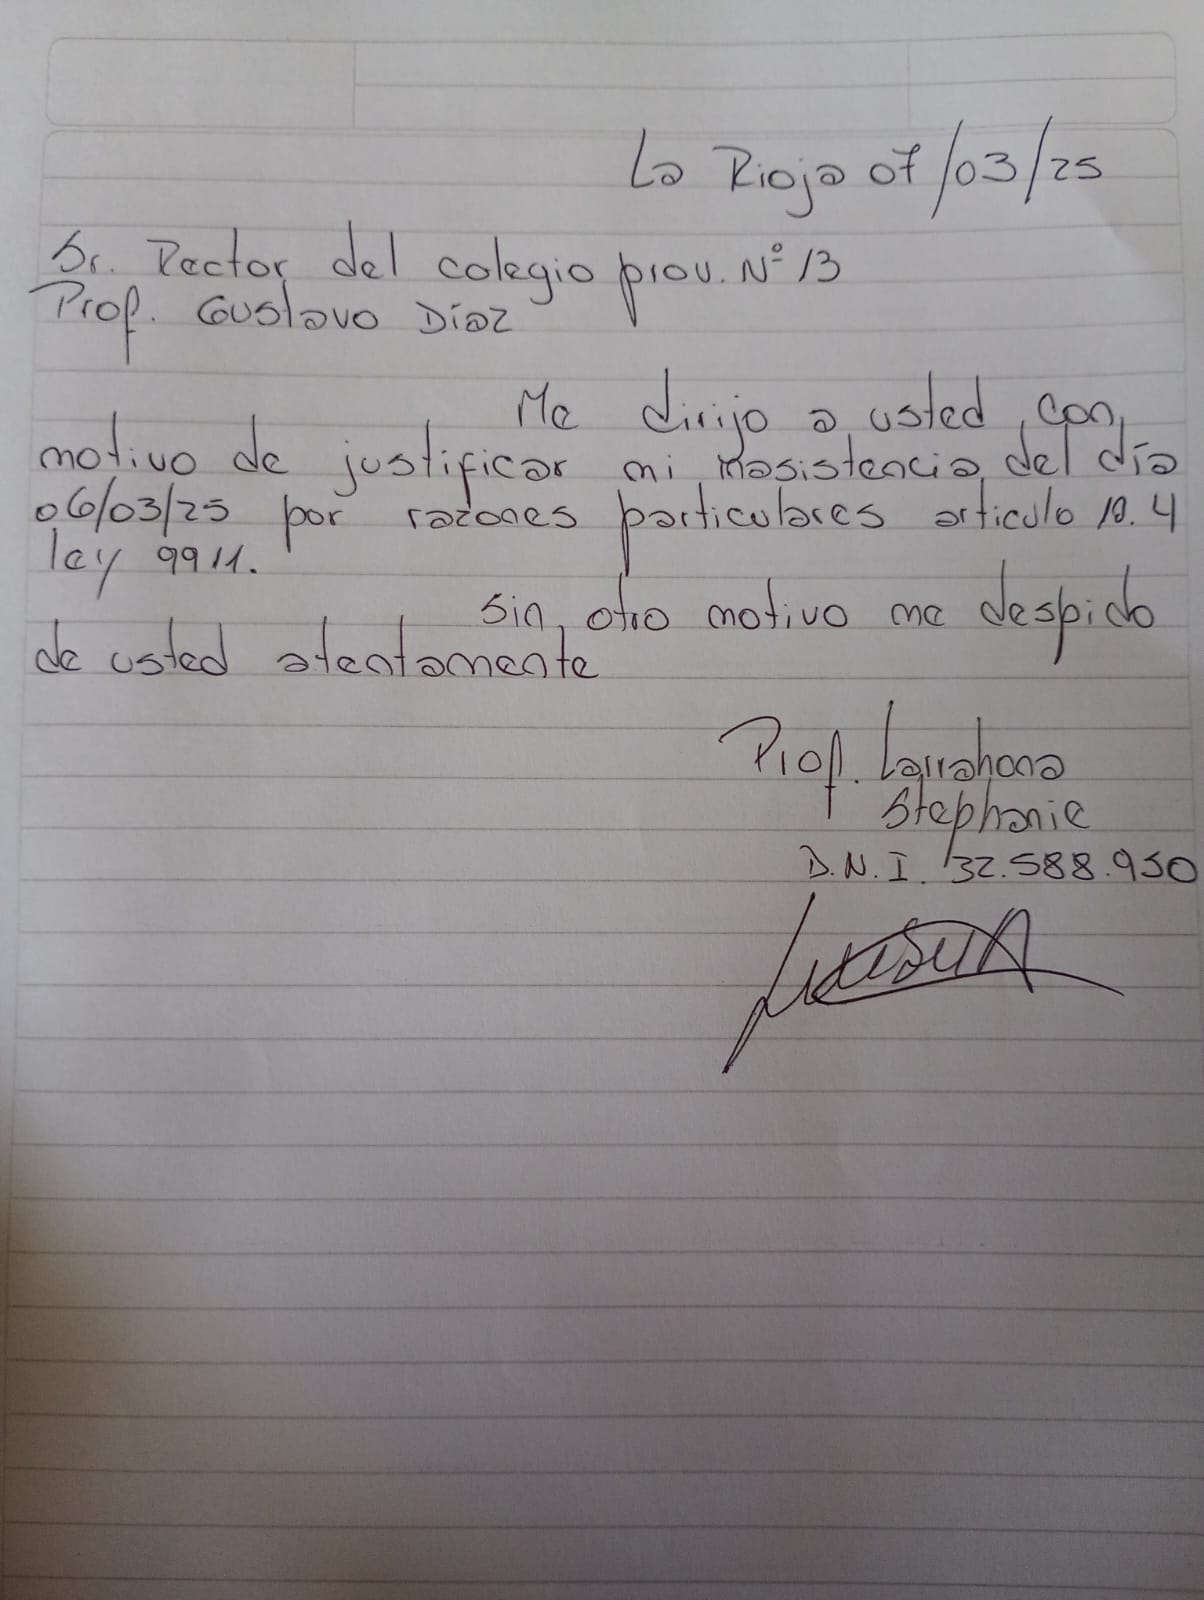 La Rioja 07/03/25
Sr. Rector del colegio prov. Nº 13
Prof. Gustavo Díaz
Me dirijo a usted con
motivo de justificar mi inasistencia del día
06/03/25 por razones particulares articulo 10.4
ley 9911.
Sin otro motivo me despido
de usted atentamente
Prof. Larrahona
Stephanie
D.N.I. 32.588.950